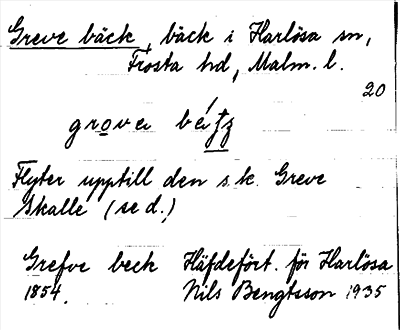 Greve bäck, bäck i Harlösa sn,
Frosta hd, Malm. l.
20
Flyter upptill den s.k. Greve
Skalle (se d.)
Grefve beck Häfdefört. för Harlösa
1854. Nils Bengtsson 1935